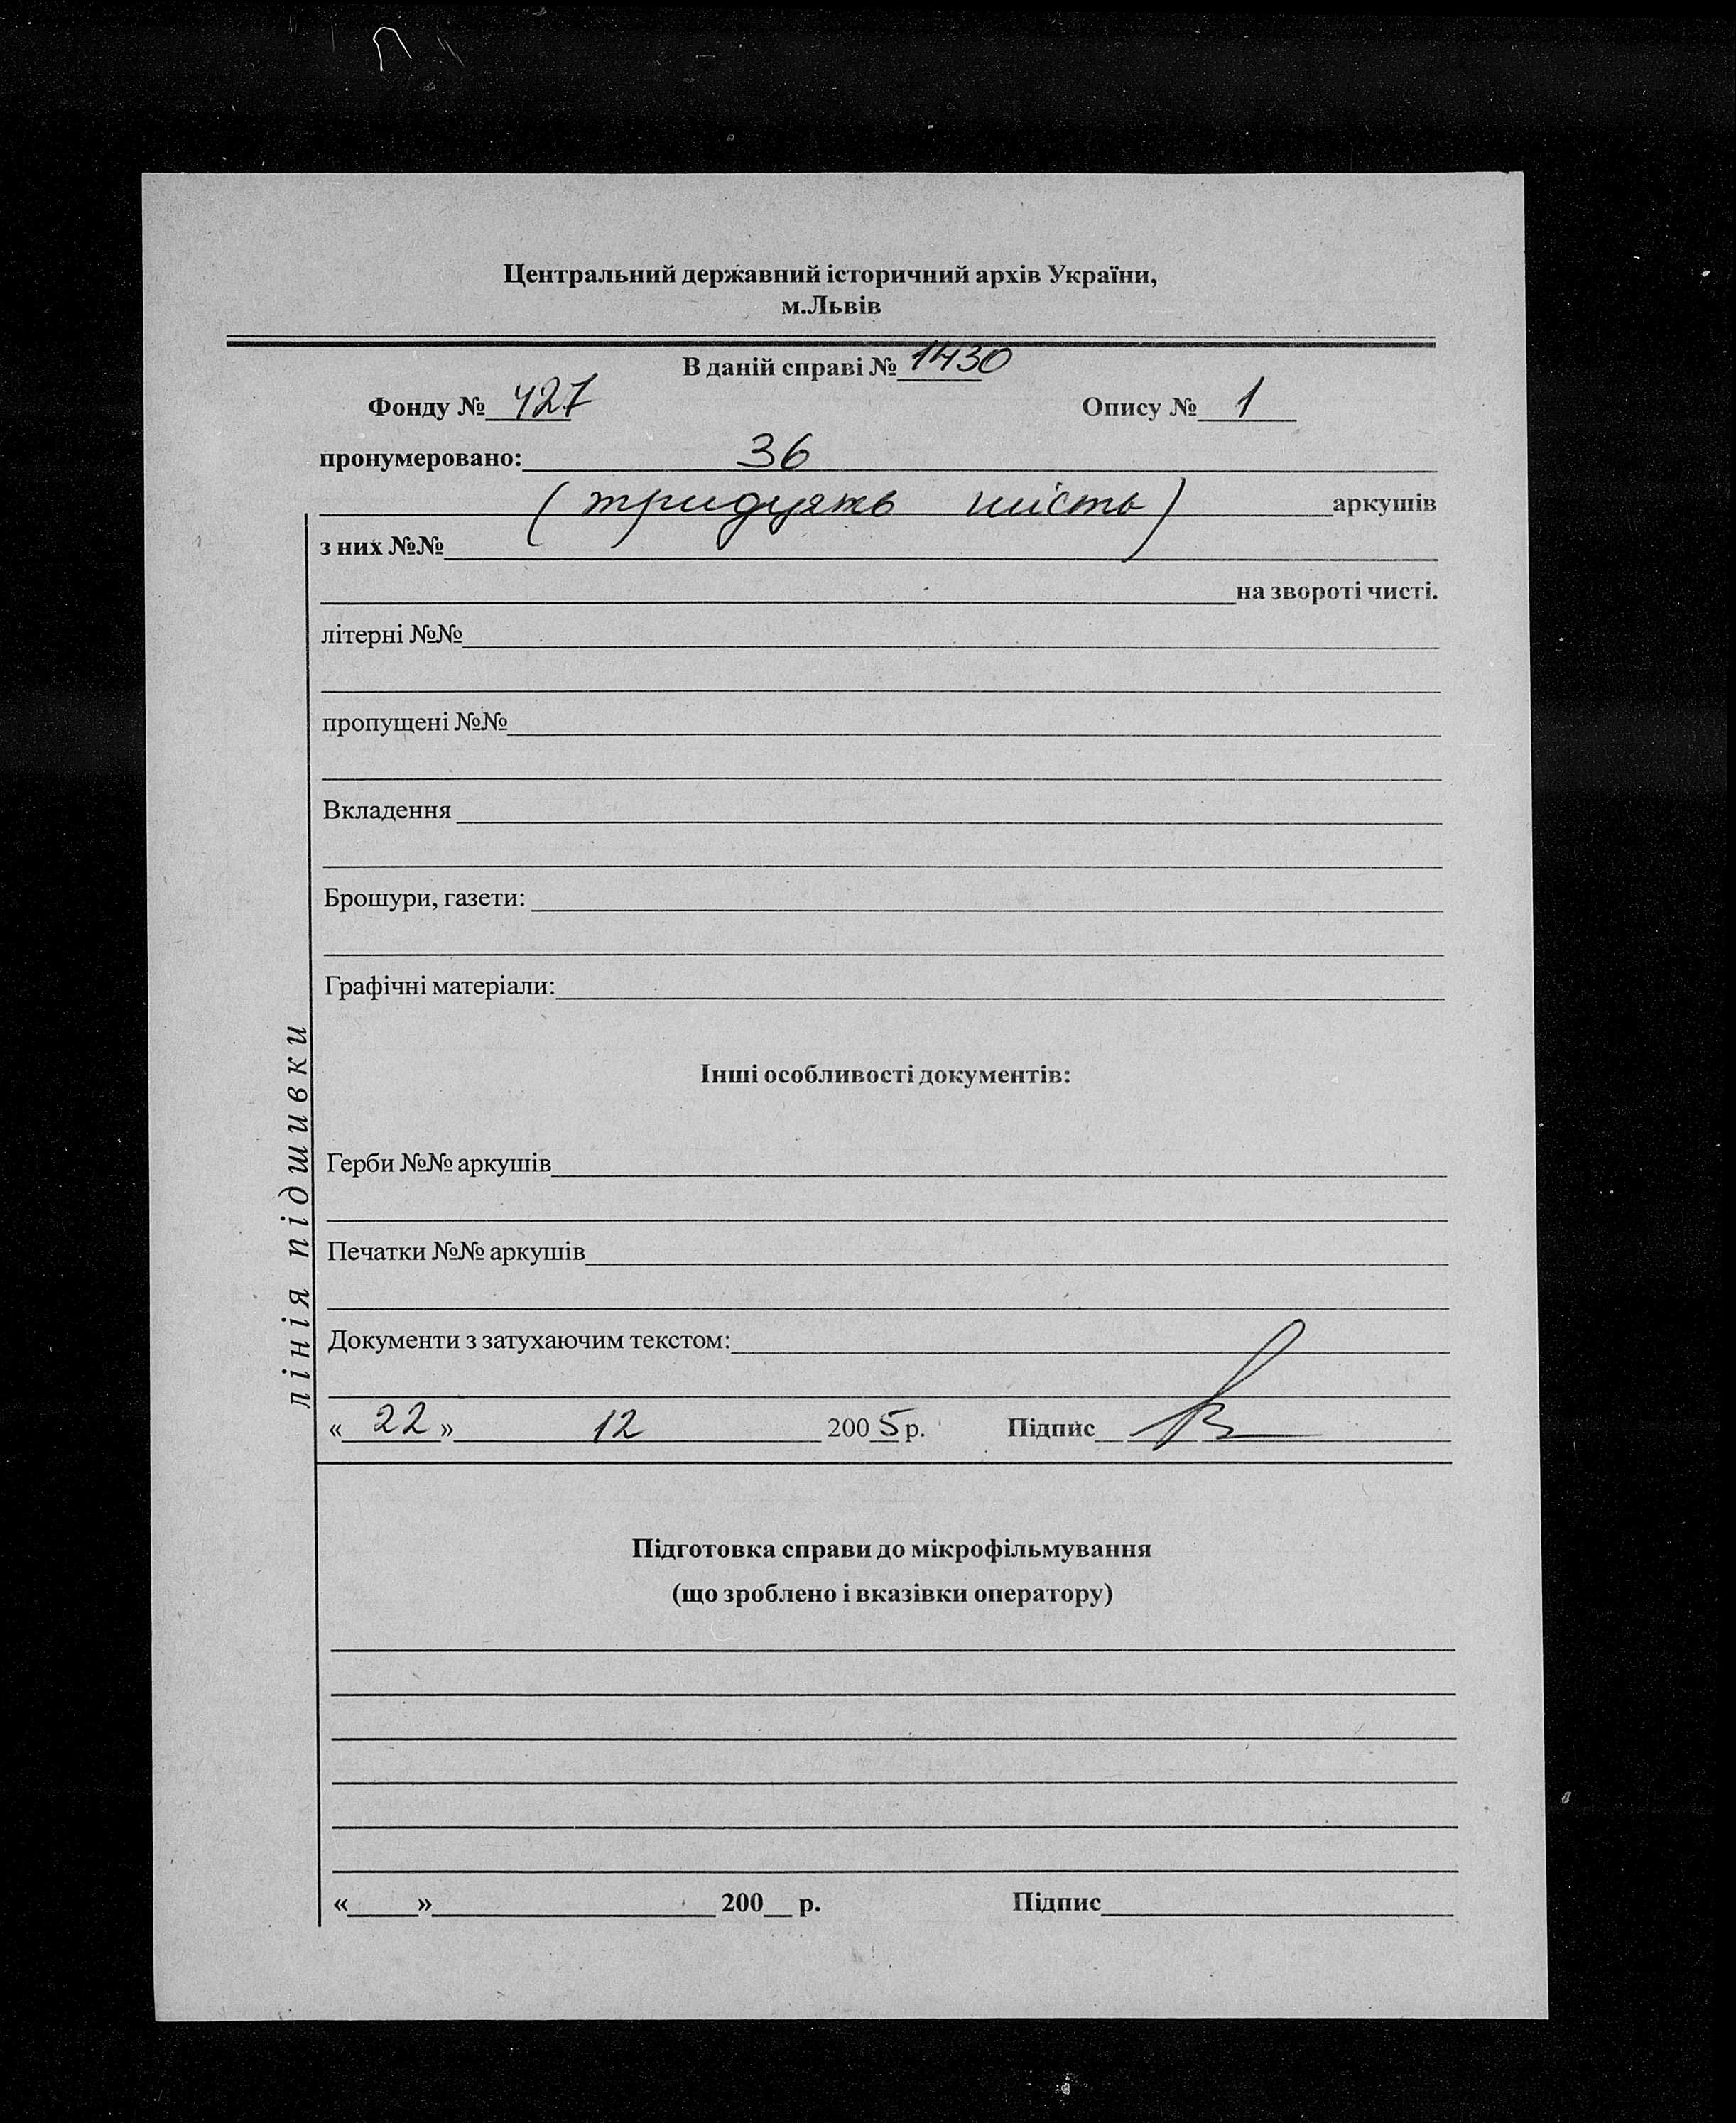 Центральний державний історичний архів України,
м.Львів
В даній справі № 1430
Фонду № 427 Опису № 1
пронумеровано: 36
(тридцять шість) аркушів
з них №№
на звороті чисті.
літерні №№
пропущені №№
Вкладення
Брошури, газети:
Графічні матеріали:
Інші особливості документів:
Герби №№ аркушів
Печатки №№ аркушів
Документи з затухаючим текстом:
« 22 » 12 2005 р. Підпис
лінія підшивки
Підготовка справи до мікрофільмування
(що зроблено і вказівки оператору)
«____»____ 200__ р. Підпис